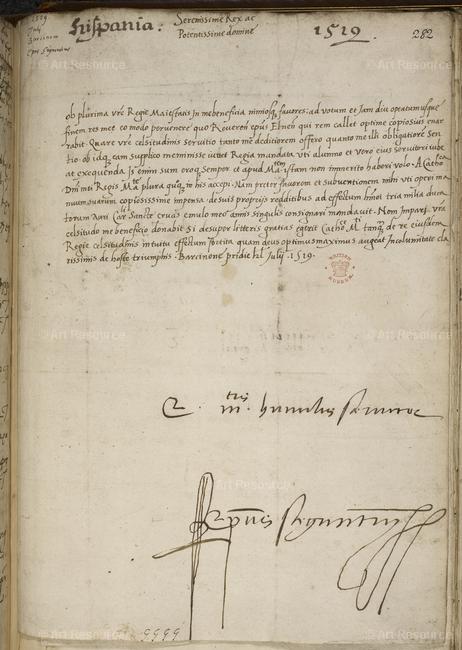 1519
July
Barcinon
Epus Seguntinus
hispania.
Serenissime Rex ac
Potentissime domine
1519.
282
ob plurima vre Regie Maiestatis In me beneficia nimiosq favores: ad votum et Iam diu opeatum usque
finem res mee eo modo pervenere quo Reveren epus Elnen qui rem callet optime copiosius enar
rabit. Quare vre celsitudinis servitio tanto me deditiorem offero quanto me illi obligatiore Sen
tio. ob idq eam supplico meminisse iubet Regia mandata uti alumno et vero eius servitori iube
at exequenda. Is enim sum eroq semper et apud Mtem istam non immerito haberi volo. A Catho
Dni mti Regis Ma plura quoq in his accepi. Nam preter favorem et subventionem mihi uti operi ma
nuum suarum copiosissime impensa de suis proprijs redditibus ad effectum hmoi tria milia duca
torum Auri Car Sancte crucis emulo meo annis singulis consignari mandavit. Non Impari vra
celsitudo me beneficio donabit Si desuper litteris gratias egerit Catho M tanq de re eiusdem
Regie celsitudinis intuitu effectum sortita quam deus optimus maximus augeat Incolumitate cla
rissimis de hoste triumphis. Barcinone pridie kal Julij. 1519.
BRITISH MUSEUM
E. R. mtis humilis servitor
Epus Seguntinus
9999
© Art Resource